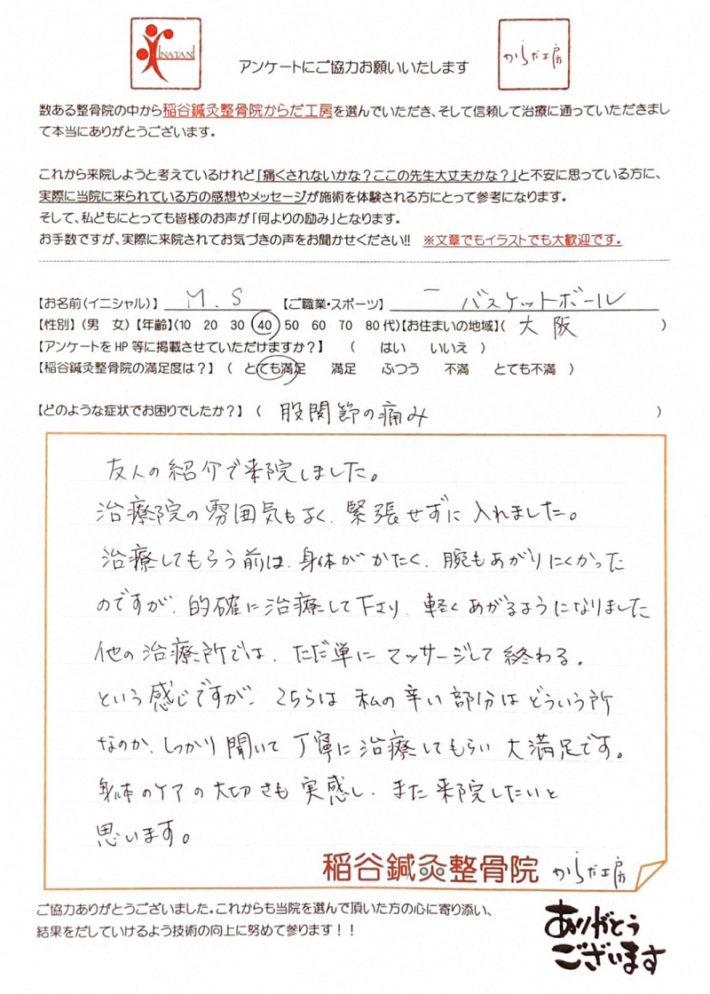 INATANI
アンケートにご協力お願いいたします
からだ工房
数ある整骨院の中から稲谷鍼灸整骨院からだ工房を選んでいただき、そして信頼して治療に通っていただきまし
て本当にありがとうございます。
これから来院しようと考えているけれど「痛くされないかな？ここの先生大丈夫かな？」と不安に思っている方に、
実際に当院に来られている方の感想やメッセージが施術を体験される方にとって参考になります。
そして、私どもにとっても皆様のお声が「何よりの励み」となります。
お手数ですが、実際に来院されてお気づきの声をお聞かせください!! ※文章でもイラストでも大歓迎です。
【お名前(イニシャル)】 M.S 【ご職業・スポーツ】 ー バスケットボール
【性別】（男 女）【年齢】(10 20 30 40 50 60 70 80代)【お住まいの地域】( 大阪 )
【アンケートをHP等に掲載させていただけますか？】 ( はい いいえ )
【稲谷鍼灸整骨院の満足度は？】 ( とても満足 満足 ふつう 不満 とても不満 )
【どのような症状でお困りでしたか？】 ( 股関節の痛み )
友人の紹介で来院しました。
治療院の雰囲気もよく、緊張せずに入れました。
治療してもらう前は、身体がかたく、腕もあがりにくかった
のですが、的確に治療して下さり、軽くあがるようになりました
他の治療所では、ただ単にマッサージして終わる。
という感じですが、こちらは私の辛い部分はどういう所
なのか、しっかり聞いて丁寧に治療してもらい大満足です。
身体のケアの大切さも実感し、また来院したいと
思います。
稲谷鍼灸整骨院 からだ工房
ご協力ありがとうございました。これからも当院を選んで頂いた方の心に寄り添い、
結果をだしていけるよう技術の向上に努めて参ります！！
ありがとう
ございます